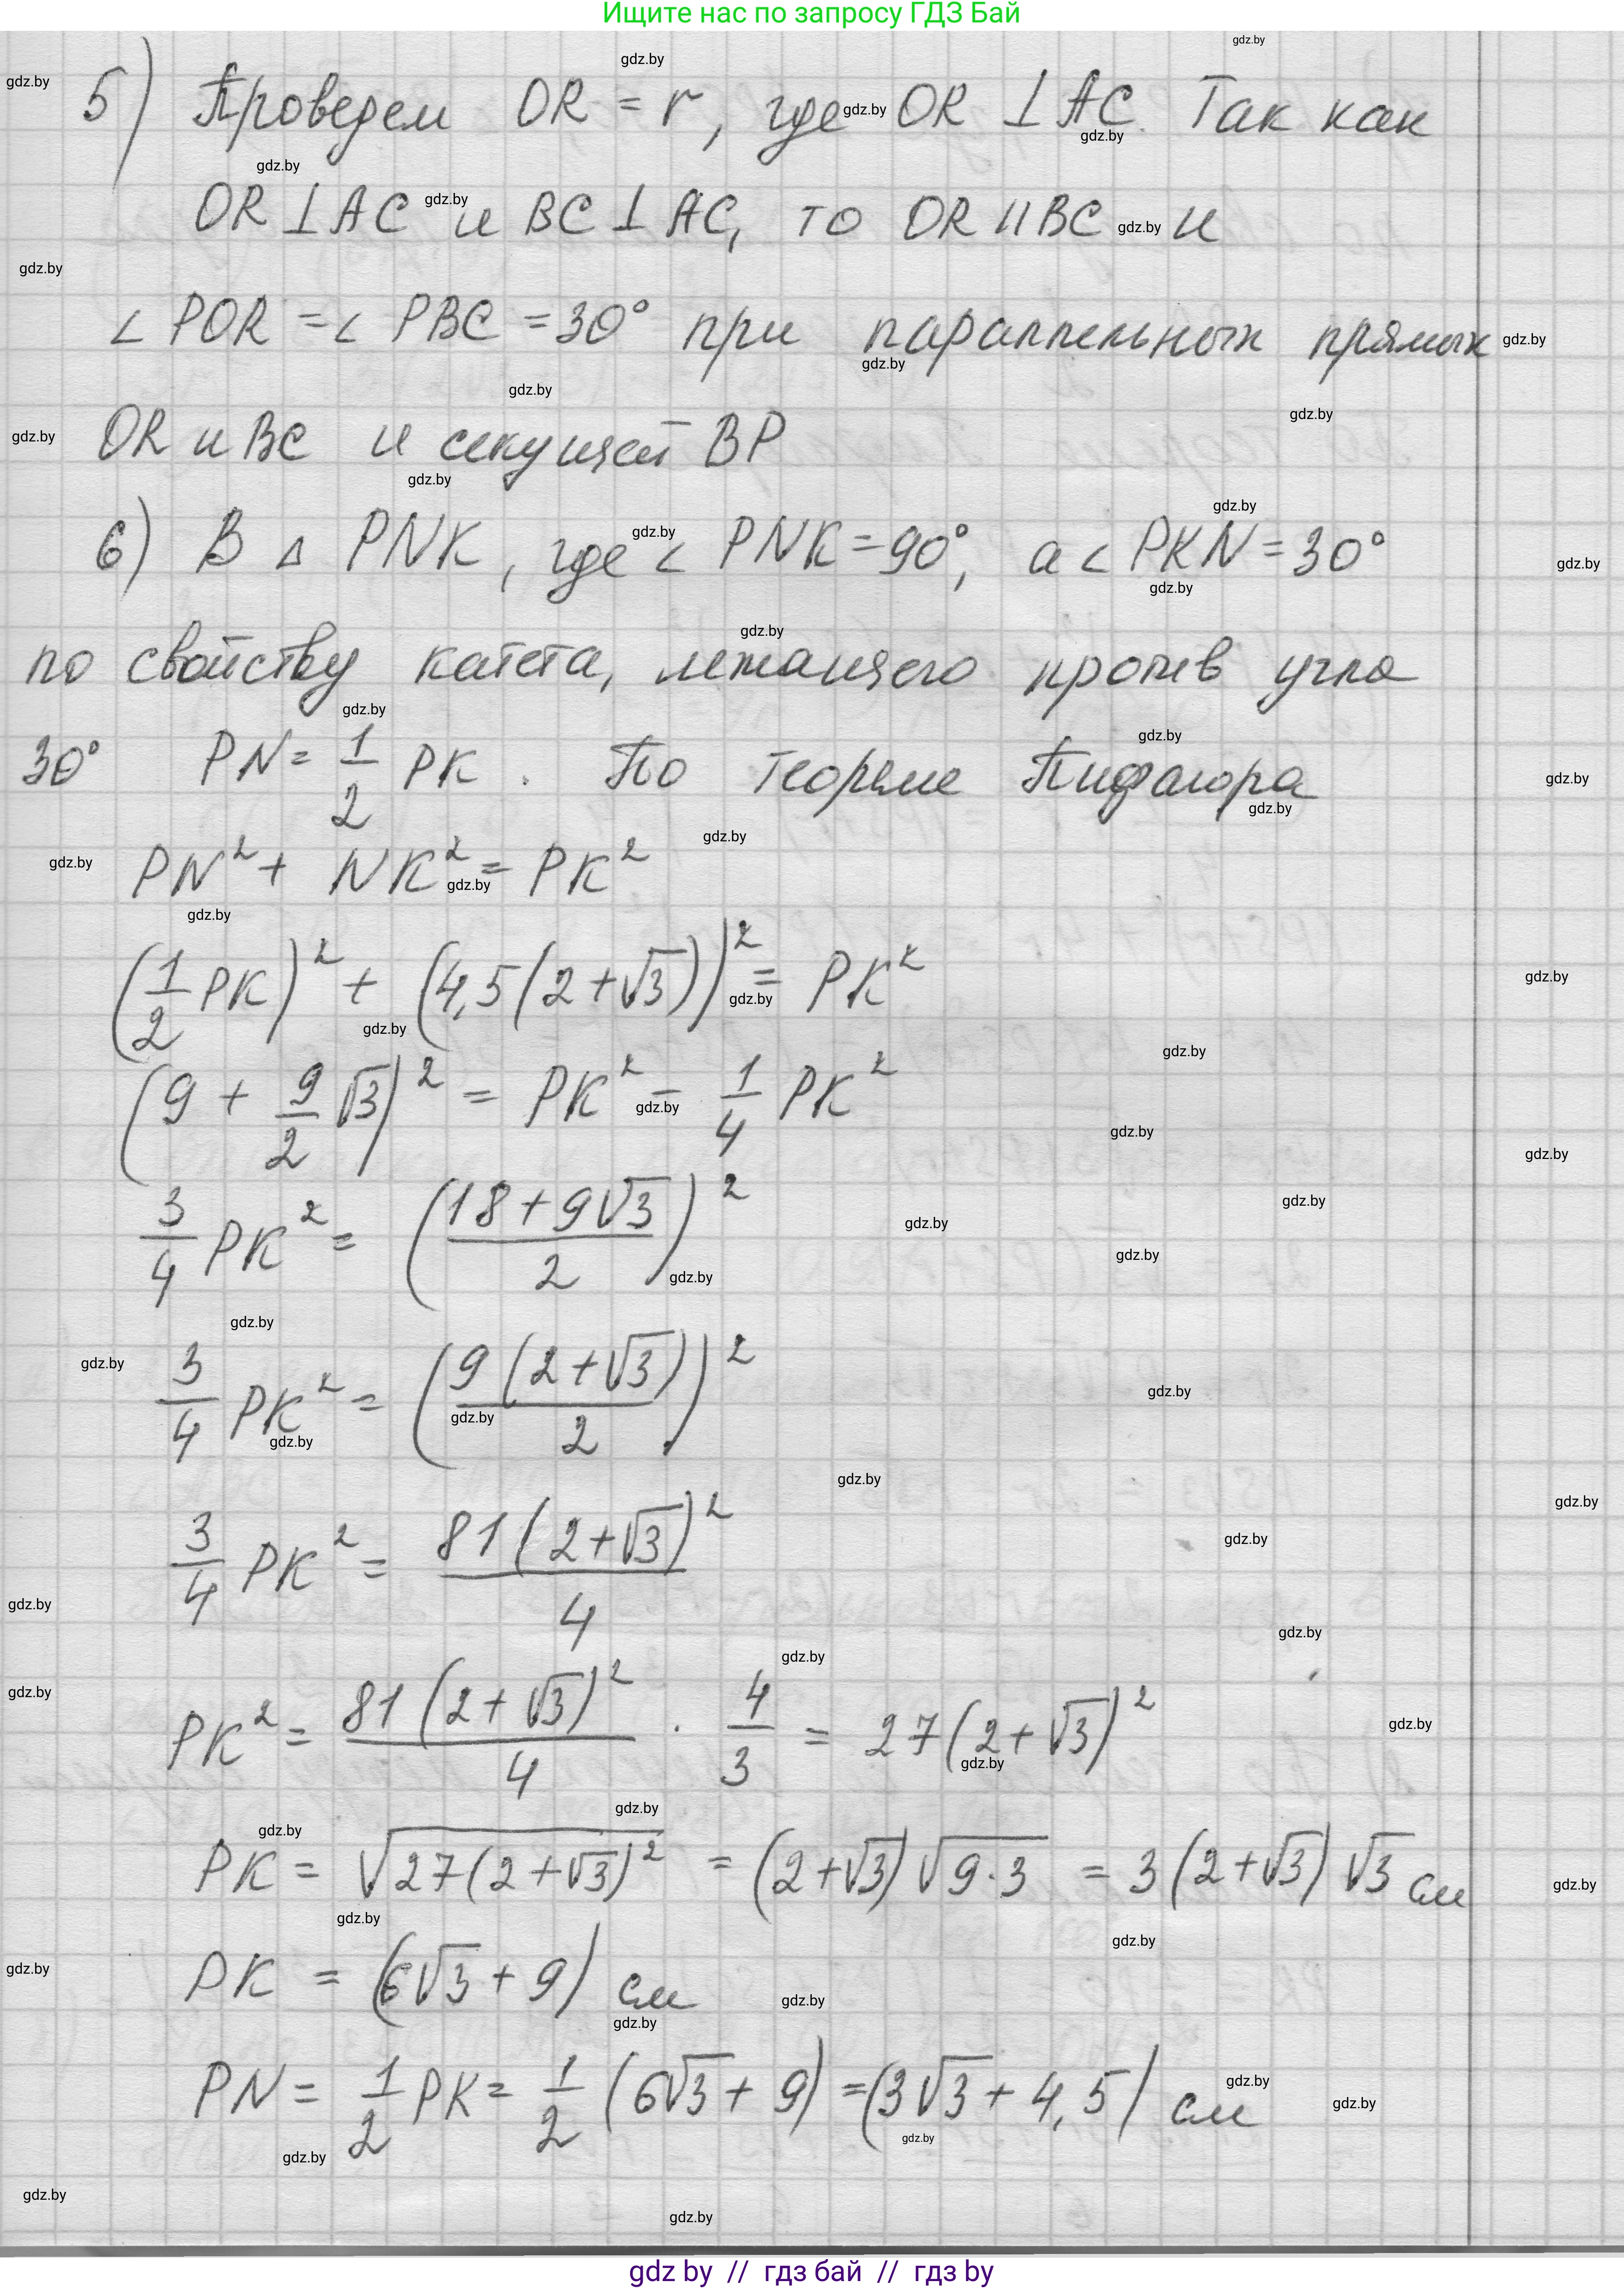 Ищите нас по запросу ГДЗ Бай
5) Проведем OR = r, где OR ⊥ AC. Так как
OR ⊥ AC и BC ⊥ AC, то OR || BC и
∠ POR = ∠ PBC = 30° при параллельных прямых
OR и BC и секущей BP
6) В △ PNK, где ∠ PNK = 90°, а ∠ PKN = 30°
по свойству катета, лежащего против угла
30° PN = 1/2 PK. По теореме Пифагора
PN² + NK² = PK²
(1/2 PK)² + (4,5(2+√3))² = PK²
(9 + 9/2 √3)² = PK² - 1/4 PK²
3/4 PK² = ((18+9√3)/2)²
3/4 PK² = (9(2+√3)/2)²
3/4 PK² = 81(2+√3)²/4
PK² = 81(2+√3)²/4 · 4/3 = 27(2+√3)²
PK = √(27(2+√3)²) = (2+√3)√(9·3) = 3(2+√3)√3 см
PK = (6√3 + 9) см
PN = 1/2 PK = 1/2 (6√3 + 9) = (3√3 + 4,5) см
gdz by // гдз бай // гдз by